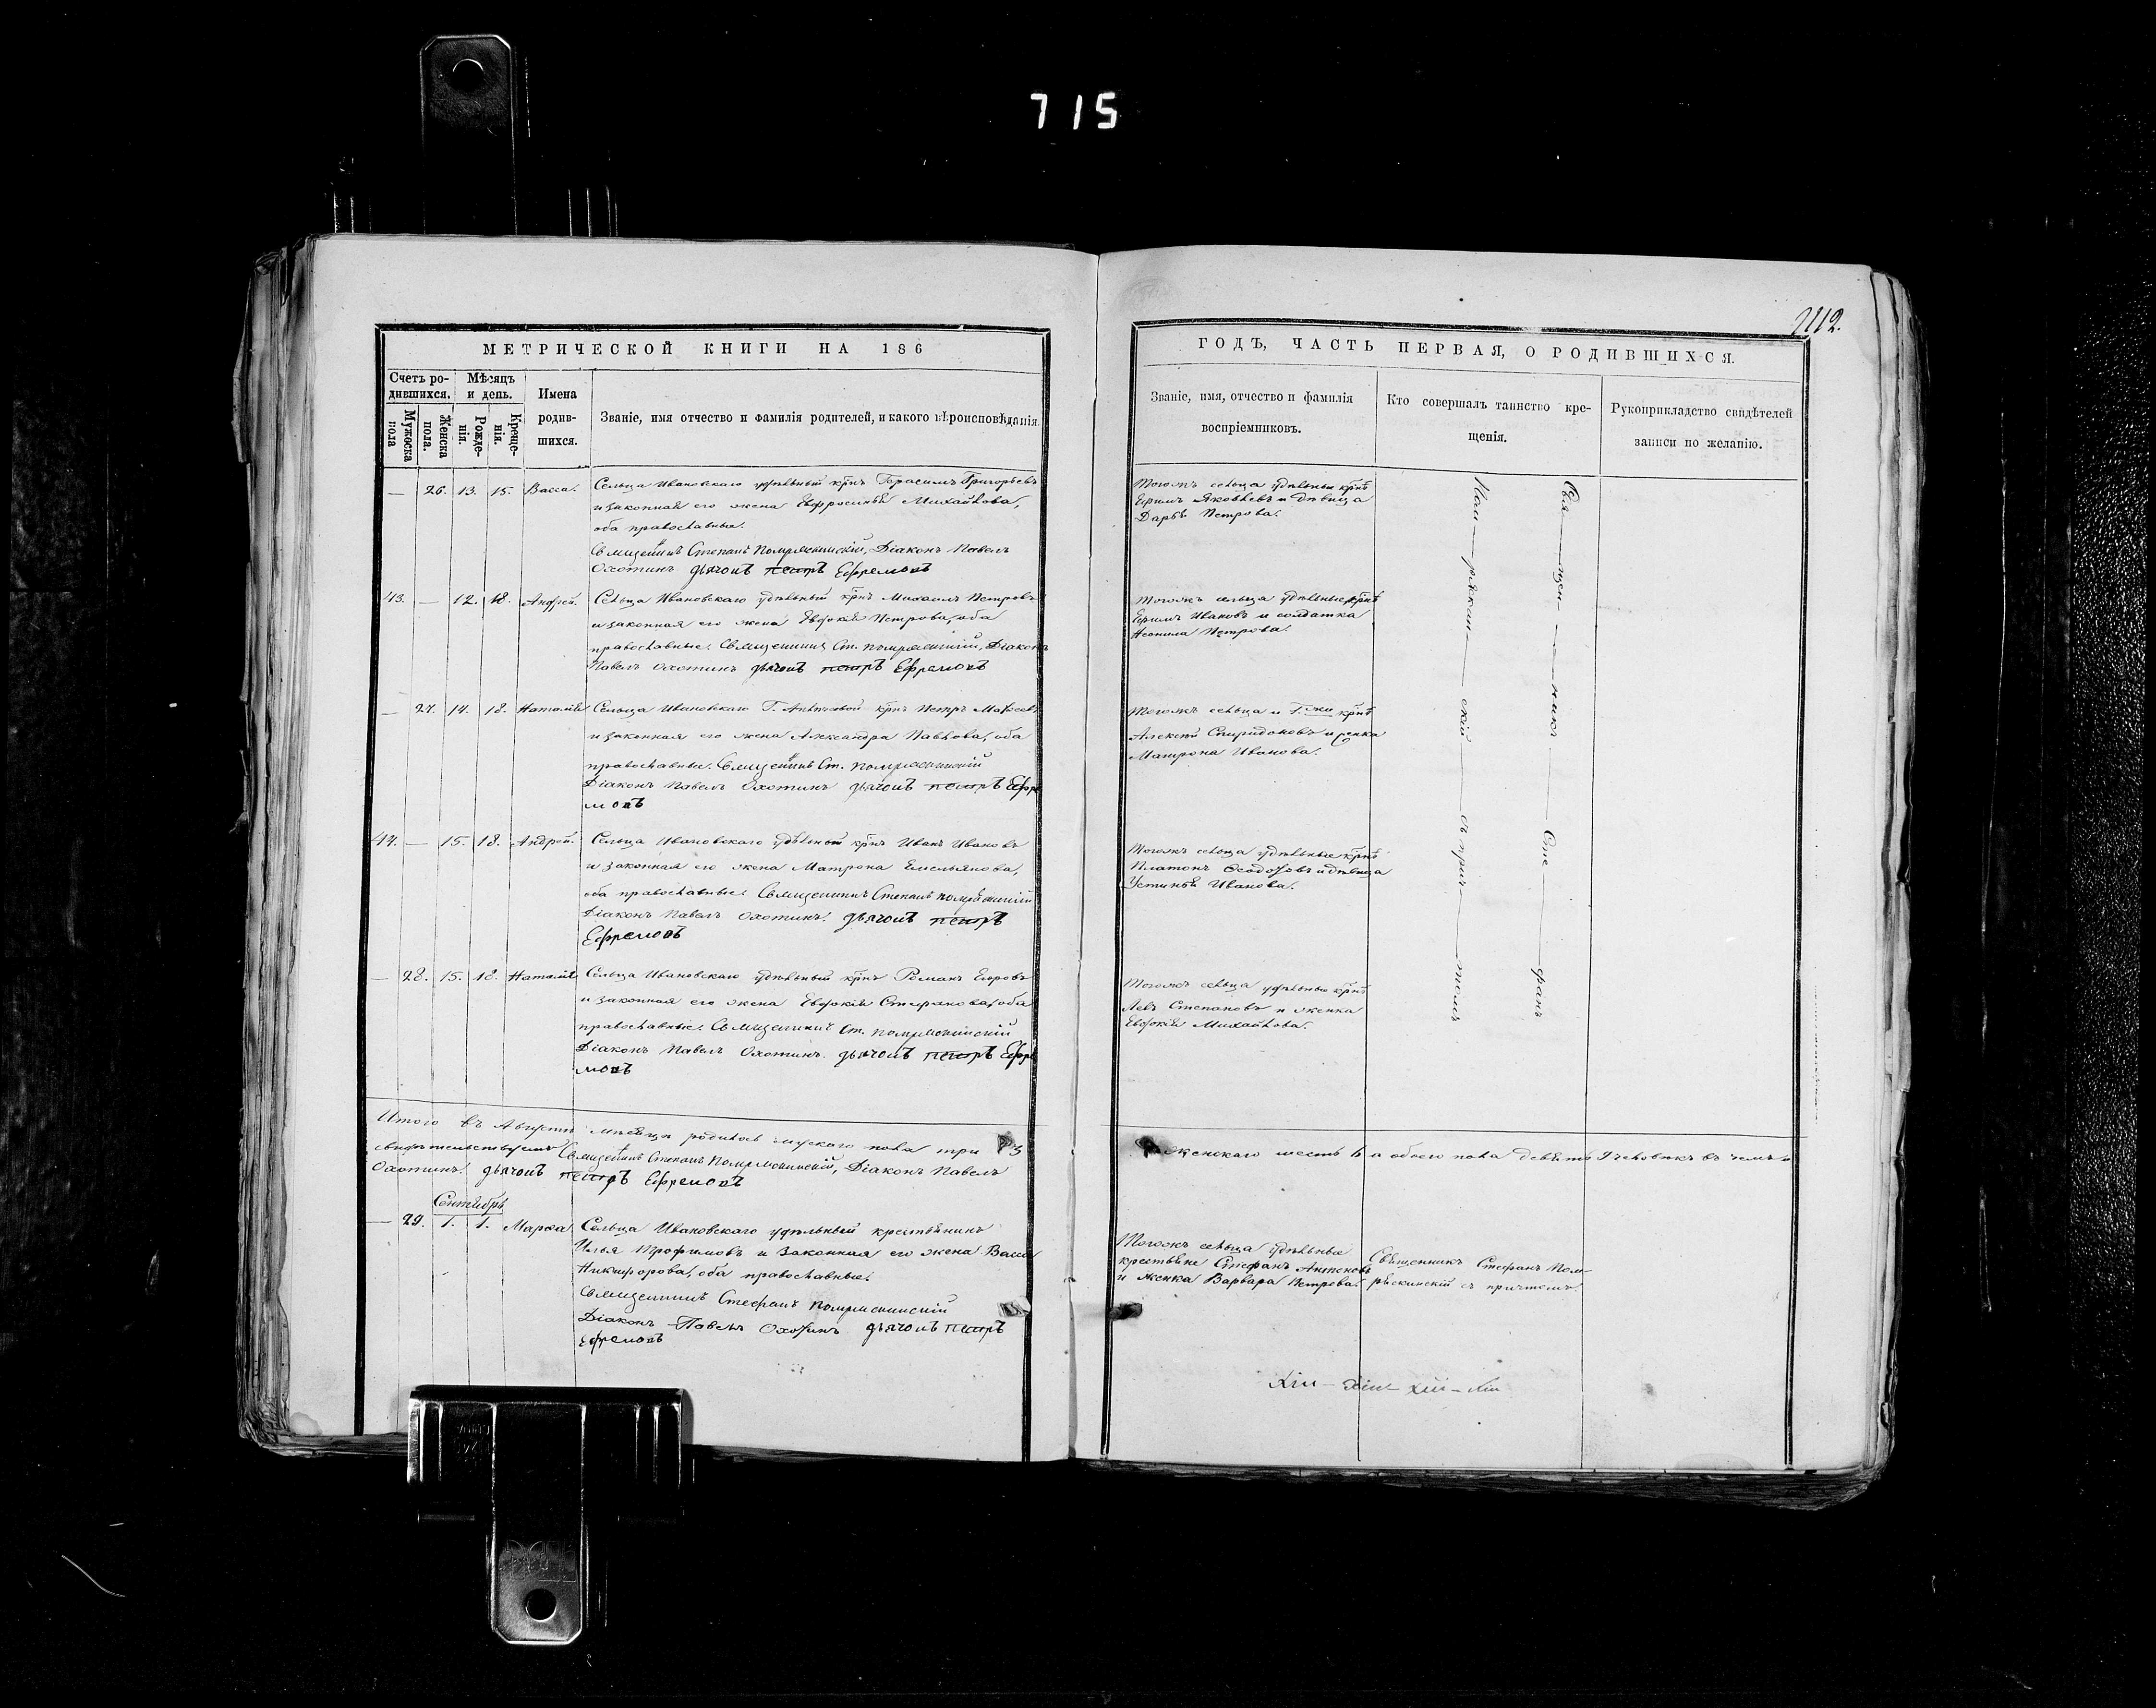 715
112.
МЕТРИЧЕСКОЙ КНИГИ НА 186
Счетъ ро-
дившихся.
Мѣсяцъ
и день.
Имена
родив-
шихся.
Мужеска
пола
Женска
пола.
Рожде-
нія.
Креще-
нія.
Званіе, имя отчество и фамилія родителей, и какого вѣроисповѣданія.
— 26. 13. 15. Васса. Сельца Ивановскаго удѣльный крнъ Герасимъ Григорьевъ
и законная его жена Евфросинья Михайлова,
оба православные.
Священникъ Степанъ Діаконъ Павелъ
Охотинъ дьячокъ Петръ Ефремовъ
43. — 12. 18. Андрей. Сельца Ивановскаго удѣльный крнъ Михаилъ Петровъ
и законная его жена Евдокія Петрова, оба
православные. Священникъ Ст. Діаконъ
Павелъ Охотинъ дьячокъ Петръ Ефремовъ
— 27. 14. 18. Наталія Сельца Ивановскаго Г. крнъ Петръ
и законная его жена Александра Павлова, оба
православные. Священникъ Ст.
Діаконъ Павелъ Охотинъ дьячокъ Петръ Ефре
мовъ
44. — 15. 18. Андрей. Сельца Ивановскаго удѣльный крнъ Иванъ Ивановъ
и законная его жена Матрона Емельянова,
оба православные. Священникъ Степанъ
Діаконъ Павелъ Охотинъ. дьячокъ Петръ
Ефремовъ
— 28. 15. 18. Наталія Сельца Ивановскаго удѣльный крнъ Романъ Егоровъ
и законная его жена Евдокія Стефанова, оба
православные. Священникъ Ст.
Діаконъ Павелъ Охотинъ. дьячокъ Петръ Ефре
мовъ
Итого въ Августѣ мѣсяцѣ родилось мужскаго пола три 3
свидѣтельствуемъ Священникъ Степанъ Діаконъ Павелъ
Охотинъ. дьячокъ Петръ Ефремовъ
Сентябрь
— 29. 1. 1. Марѳа Сельца Ивановскаго удѣльный крестьянинъ
Илья Трофимовъ и законная его жена Васса
Никифорова, оба православные.
Священникъ Стефанъ
Діаконъ Павелъ Охотинъ дьячокъ Петръ
Ефремовъ
ГОДЪ, ЧАСТЬ ПЕРВАЯ, О РОДИВШИХСЯ.
Званіе, имя, отчество и фамилія
воспріемниковъ.
Кто совершалъ таинство кре-
щенія.
Рукоприкладство свидѣтелей
записи по желанію.
Тогожъ сельца удѣльный крнъ
Ефимъ Яковлевъ и дѣвица
Дарья Петрова.
Тогожъ сельца удѣльные крнъ
Ефимъ Ивановъ и солдатка
Неонила Петрова.
Тогожъ сельца и Г. крнъ
Алексѣй Спиридоновъ и женка
Матрона Иванова.
Тогожъ сельца удѣльные крнъ
Платонъ Ѳеодоровъ и дѣвица
Устинья Иванова.
Тогожъ сельца удѣльный крнъ
Левъ Степановъ и женка
Евдокія Михайлова.
Свя — щен — никъ — Сте — фанъ
скій — съ прич — томъ
женскаго шесть 6 а обоего пола девять 9 человѣкъ въ чемъ и
Тогожъ сельца удѣльные
крестьяне Стефанъ Антоновъ
и женка Варвара Петрова.
Священникъ Стефанъ Пом-
ряскинскій съ причтомъ.